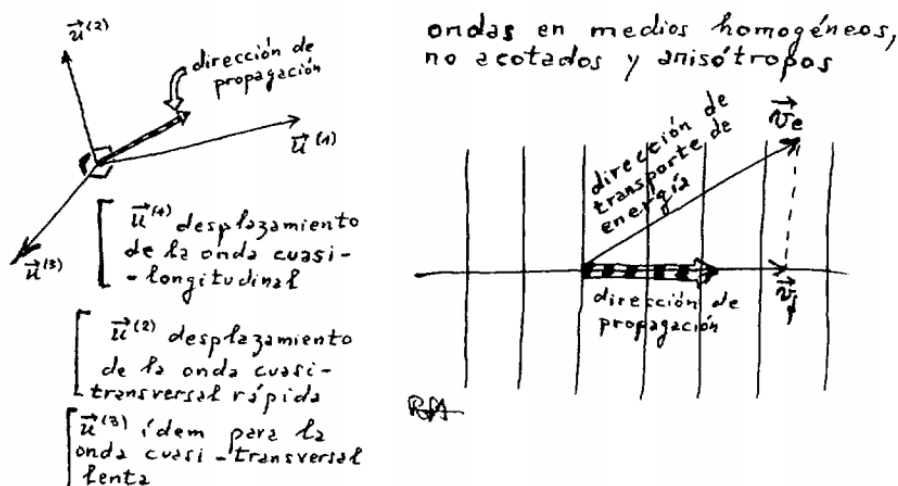 u⃗⁽²⁾
dirección de
propagación
u⃗⁽¹⁾
u⃗⁽³⁾
u⃗⁽¹⁾ desplazamiento
de la onda cuasi-
-longitudinal
u⃗⁽²⁾ desplazamiento
de la onda cuasi-
transversal rápida
u⃗⁽³⁾ ídem para la
onda cuasi-transversal
lenta
ondas en medios homogéneos,
no acotados y anisótropos
dirección de
transporte de
energía
v⃗e
dirección de
propagación
v⃗f